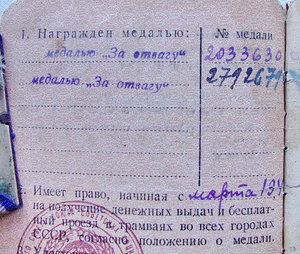 1. Награжден медалью: № медали
медалью „За отвагу“ 2033630
медалью „За отвагу“
2. Имеет право, начиная с марта 194
на получение денежных выдач и бесплат-
ный проезд в трамваях во всех городах
СССР, согласно положению о медали.